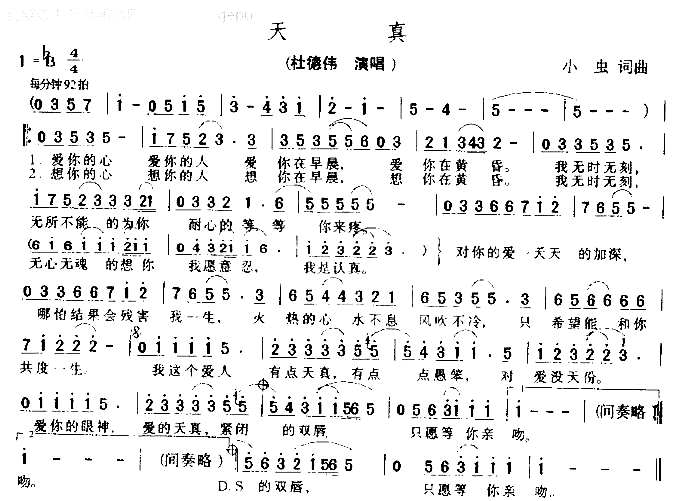 天 真
1=♭B 4/4 (杜德伟 演唱) 小 虫 词曲
每分钟92拍
(0 3 5 7 | 1 - 0 5 1 5 | 3 - 3 1 | 2 - 1 - | 5 - 4 - | 5 - - - | 5 - - - )
0 3 5 3 5 - | 1 7 5 2 3 · 3 | 0 3 5 3 5 5 6 0 3 | 2 1 3 4 3 2 - | 0 3 3 5 3 5 ·
1. 爱你的心 爱你的人 爱 你在早晨, 爱 你在黄 昏。 我无时无刻,
2. 想你的心 想你的人 想 你在早晨, 想 你在黄 昏。 我无时无刻,
1 7 5 2 3 3 3 2 1 | 0 3 3 2 1 · 6 | 5 5 5 5 5 - | 0 3 3 6 6 7 1 2 | 7 6 5 5 -
无所不能 的为你 耐心的 等 等 你来疼一
无心无魂 的想你 我愿意 忍, 我是认真。 对你的爱 一天天 的加深,
0 3 3 6 6 7 1 2 | 7 6 5 5 · 3 | 6 5 4 4 3 2 1 | 6 5 5 5 0 3 | 6 5 6 6 6 6
哪怕结果会残害 我一生, 火 热的心 水不息 风吹不冷, 只 希望能 和你
7 1 2 2 2 - | 0 1 1 1 1 5 ·
共度一生。 我这个爱人 有点天真, 有点 点愚笨, 对 爱没天份。
0 1 1 1 1 5 · | 2 3 3 3 3 5 5 | 5 4 3 1 1 5 6 5 | 0 5 6 3 1 1 1 | 1 - - - | (间奏略)
爱你的眼神, 爱的天真, 紧闭 的双唇 只愿等 你亲 吻。
1 - - - | (间奏略) | 5 6 3 2 1 5 6 5 | 0 5 6 3 1 1 1 | 1 - - -
吻。 D.S 的双唇, 只愿等 你亲 吻。